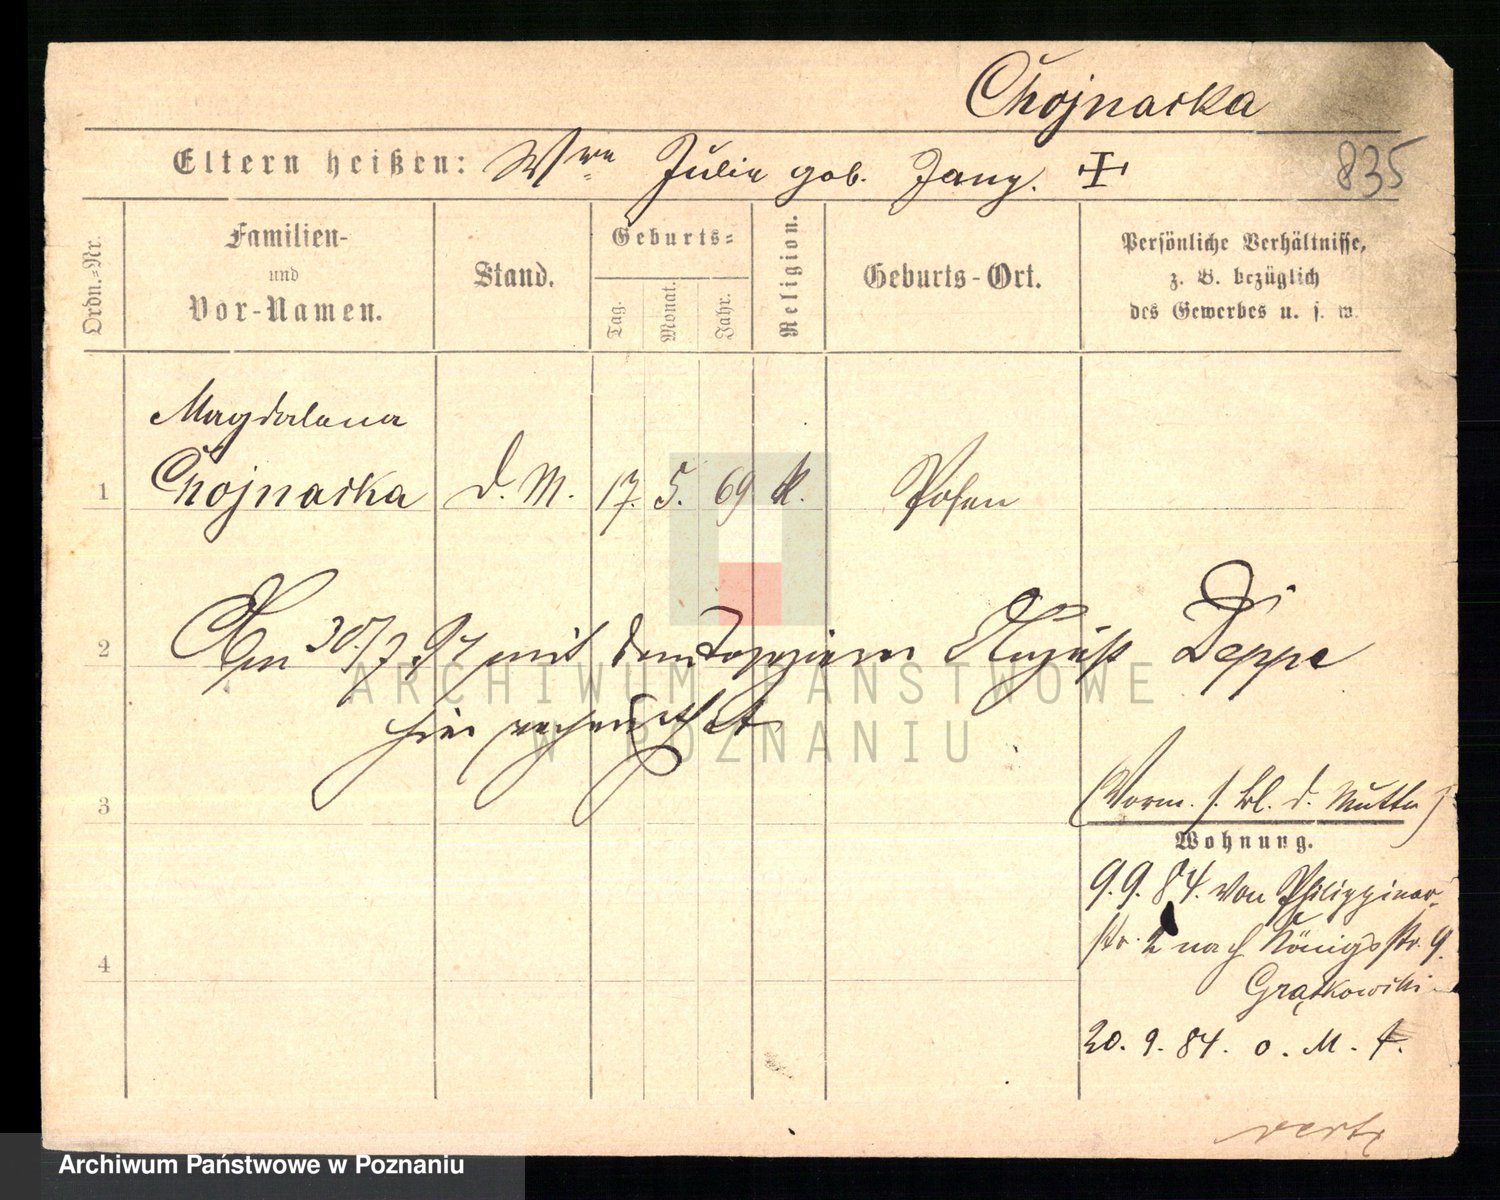 Chojnacka
835
Eltern heißen: Wwe Julie geb. Jany. +
Ordn.=Nr.
Familien-
und
Vor-Namen.
Stand.
Geburts=
Tag.
Monat.
Jahr.
Religion.
Geburts-Ort.
Persönliche Verhältnisse,
z. B. bezüglich
des Gewerbes u. s. w.
Magdalena
1 Chojnacka d. M. 17. 5. 69 k. Posen
2 Am 30/7 97 mit dem Tapezierer August Deppe
hier verheirathet
3
(Vorm. s. bl. d. Mutter)
Wohnung.
9. 9. 84. von Philippiner-
str. 2 nach Königsstr. 9.
4
Grątkowski
20. 9. 84. o. M. f.
verte
ARCHIWUM PAŃSTWOWE
W POZNANIU
Archiwum Państwowe w Poznaniu